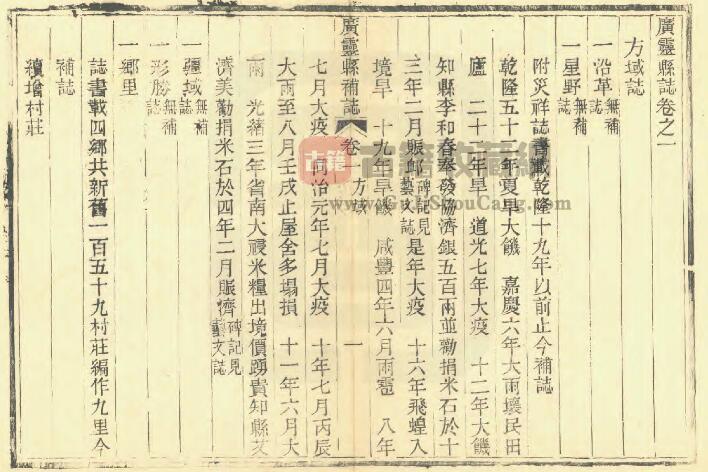 廣靈縣誌卷之一
方域誌
一沿革無補誌
一星野無補誌
附災祥誌書載乾隆十九年以前止今補誌
乾隆五十年夏旱大饑 嘉慶六年大雨壞民田
廬 二十年旱 道光七年大疫 十二年大饑
知縣李和春奉發協濟銀五百兩並勸捐米石於十
三年二月賑邮碑記見藝文誌 是年大疫 十六年飛蝗入
境旱 十九年旱饑 咸豐四年六月雨雹 八年
廣靈縣補誌 卷一 方域 一
七月大疫 同治元年七月大疫 十年七月丙辰
大雨至八月壬戌止屋舍多塌損 十一年六月大
雨 光緒三年省南大祲米糧出境價踴貴知縣
濟美勸捐米石於四年二月賑濟碑記見藝文誌
一疆域無補誌
一形勝無補誌
一鄉里
誌書載四鄉共新舊一百五十九村莊編作九里今
補誌
續增村莊
古籍 古籍收藏網
www.GuJiShouCang.com